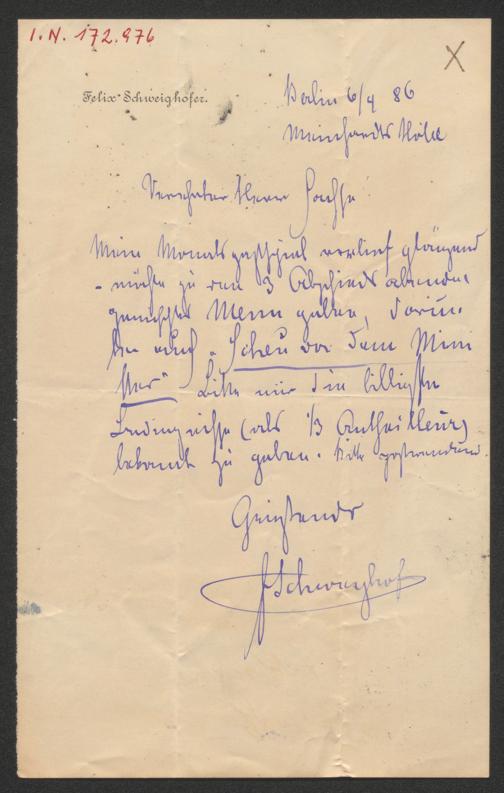 I.N. 172.976
X
Felix Schweighofer.
Berlin 6/4 86
Meinhardts Hôtel
Verehrter Herr Sachse
Mein Monatsgastspiel verlief glänzend
- möchte zu den 3 Abschiedsabenden
gemischtes Menu geben, darun-
ter auch „Scheu vor dem Mini
ster" Bitte mir die billigsten
Bedingnisse (als 1/3 Antheilleur)
bekannt zu geben. Bitte postwendend.
Grüßend
FSchweighof